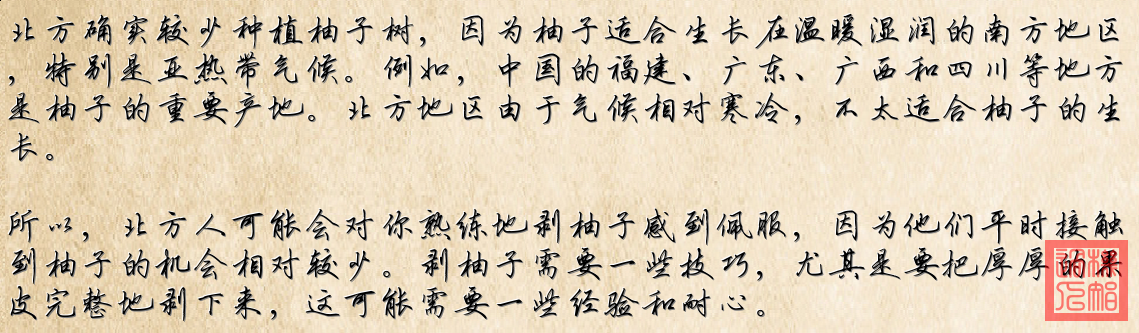 北方确实较少种植柚子树，因为柚子适合生长在温暖湿润的南方地区
，特别是亚热带气候。例如，中国的福建、广东、广西和四川等地方
是柚子的重要产地。北方地区由于气候相对寒冷，不太适合柚子的生
长。
所以，北方人可能会对你熟练地剥柚子感到佩服，因为他们平时接触
到柚子的机会相对较少。剥柚子需要一些技巧，尤其是要把厚厚的果
皮完整地剥下来，这可能需要一些经验和耐心。